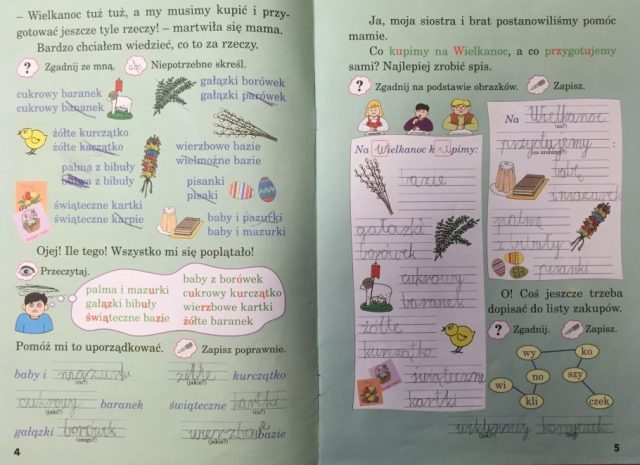 – Wielkanoc tuż tuż, a my musimy kupić i przy-
gotować jeszcze tyle rzeczy! – martwiła się mama.
Bardzo chciałem wiedzieć, co to za rzeczy.
? Zgadnij ze mną. Niepotrzebne skreśl.
cukrowy baranek
cukrowy bananek
gałązki borówek
gałązki parówek
żółte kurczątko
żółte kaczątko
wierzbowe bazie
wielmożne bazie
palma z bibuły
z bibuły
pisanki
pisaki
świąteczne kartki
świąteczne karpie
baby i pazurki
baby i mazurki
Ojej! Ile tego! Wszystko mi się poplątało!
Przeczytaj.
palma i mazurki
gałązki bibuły
świąteczne bazie
baby z borówek
cukrowy kurczątko
wierzbowe kartki
żółte baranek
Pomóż mi to uporządkować. Zapisz poprawnie.
baby i mazurki
(co?)
żółte kurczątko
(jakie?)
cukrowy baranek
(jaki?)
świąteczne kartki
(co?)
gałązki borówek
(czego?)
wierzbowe bazie
(jakie?)
4
Ja, moja siostra i brat postanowiliśmy pomóc
mamie.
Co kupimy na Wielkanoc, a co przygotujemy
sami? Najlepiej zrobić spis.
? Zgadnij na podstawie obrazków. Zapisz.
Na Wielkanoc kupimy:
bazie
gałązki
borówek
cukrowy
baranek
żółte
kurczątko
świąteczne
kartki
Na Wielkanoc
(co?)
przygotujemy :
(co zrobimy?)
babę
mazurek
palmę
z bibuły
pisanki
O! Coś jeszcze trzeba
dopisać do listy zakupów.
? Zgadnij. Zapisz.
wy
ko
no
szy
wi
kli
czek
wiklinowy koszyczek
(jaki?) (co?)
5